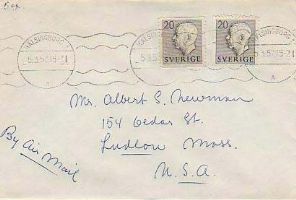 20 20
SVERIGE SVERIGE
Mr. Albert E. Newman
154 Cedar St.
Ludlow Mass.
U.S.A.
By Air Mail